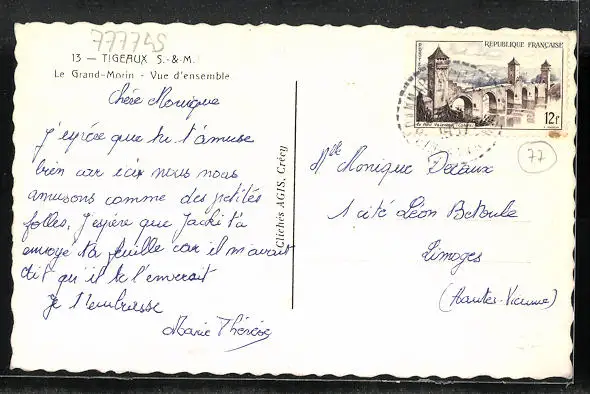 777745
13 — TIGEAUX S.-&-M.
Le Grand-Morin - Vue d'ensemble
Chère Monique
J'espère que tu t'amuse
bien car ici nous nous
amusons comme des petites
folles, J'espère que Jacki t'a
envoyé ta feuille car il m'avait
dit qu'il te l'enverait
Je t'embrasse
Marie Thérèse
Clichés AGIS, Crécy
POSTES
REPUBLIQUE FRANÇAISE
12f
77
Mlle Monique Decaux
1 cité Léon Betoule
Limoges
(Haute-Vienne)